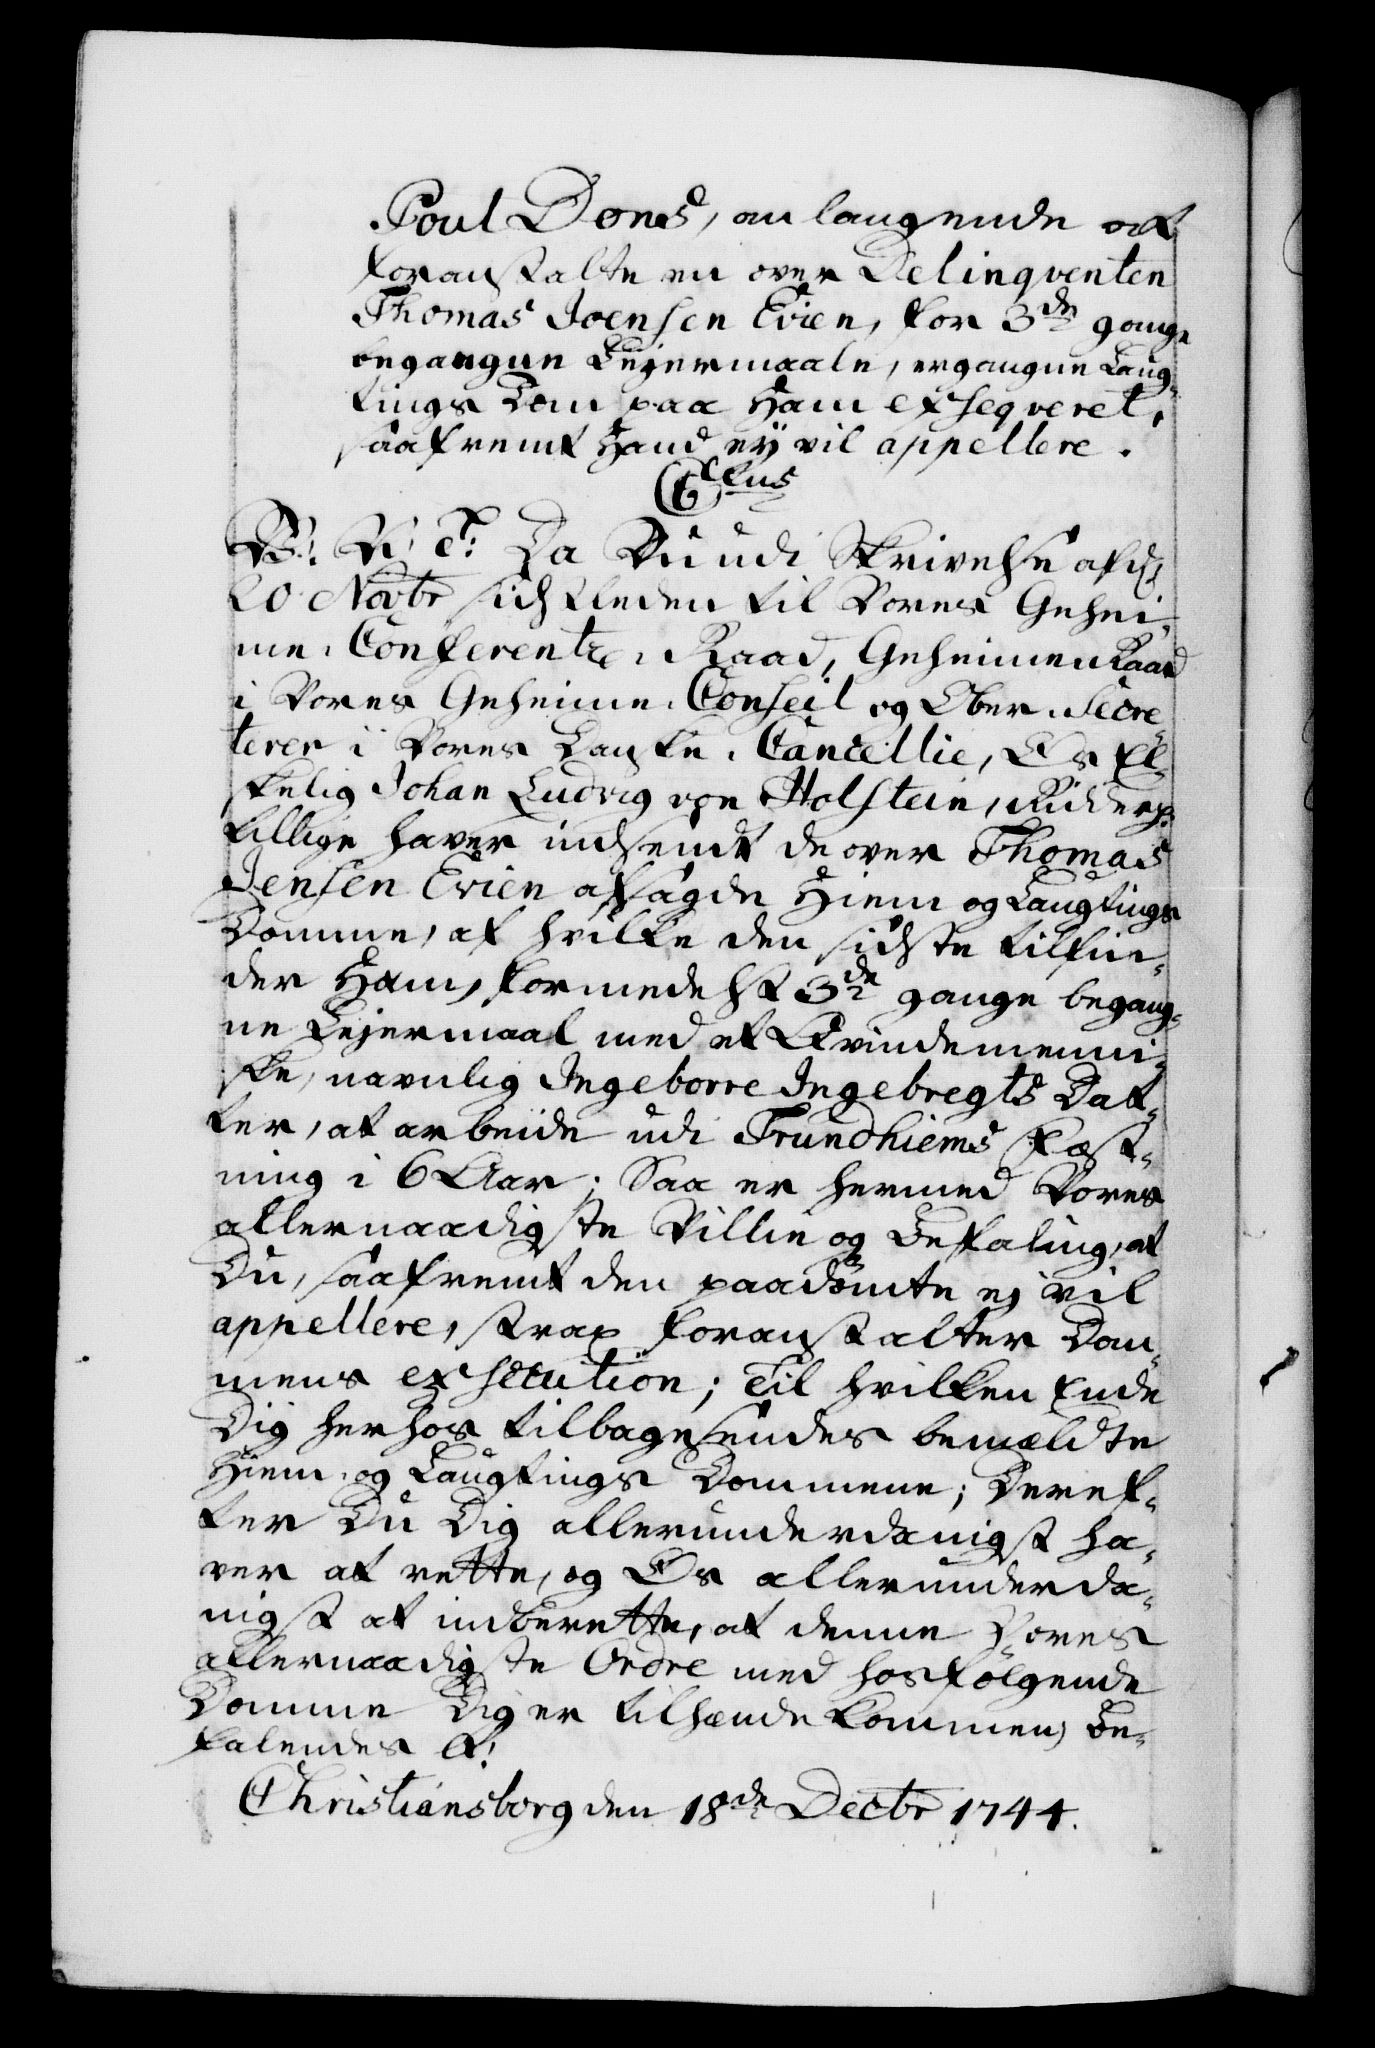 Poul Dons, anlangende at
foranstalte en over Delinqventen
Thomas Joensen Evien, for 3de gange
begangne Leyermaale, ergangne Laug-
tings Dom paa Ham exseqveret,
saafremt Hand ey vil appellere.
C6tus
V: V: et: Da Du udi Skrivelse af d:
20 Novbr sidstleden til Vores Gehei-
me-Conferentz-Raad, Geheimen Raad
i Vores Geheime-Conseil og Ober-Secre-
terer i Vores Danske-Cancellie, Os El-
skelig Johan Ludvig von Holstein, Ridder p:
tillige haver indsendt de over Thomas
Jensen Evien afsagde Hiem og Laugtings
Domme, af hvilke den sidste tilfin-
der Ham, formedelst 3de gange begang-
ne Leyermaal med et Qvindemenni-
ske, navnlig Ingeborre Ingebregts Dat-
ter, at arbeide udi Trundhiems Fæst-
ning i 6 Aar; Saa er hermed Vores
allernaadigste Villie og Befaling, at
Du, saafremt den paadömte ej vil
appellere, strax foranstalter Dom-
mens exsecution; Til hvilken Ende
Dig herhos tilbagesendes bemældte
Hiem- og Laugtings Dommene; Deref-
ter Du Dig allerunderdanigst ha-
ver at rette, og Os allerunderda-
nigst at indberette, at denne Vores
allernaadigste Ordre med hosfølgende
Domme Dig er tilhænde kommen, Be-
falendes et:
Christiansborg den 18de Decbr 1744.